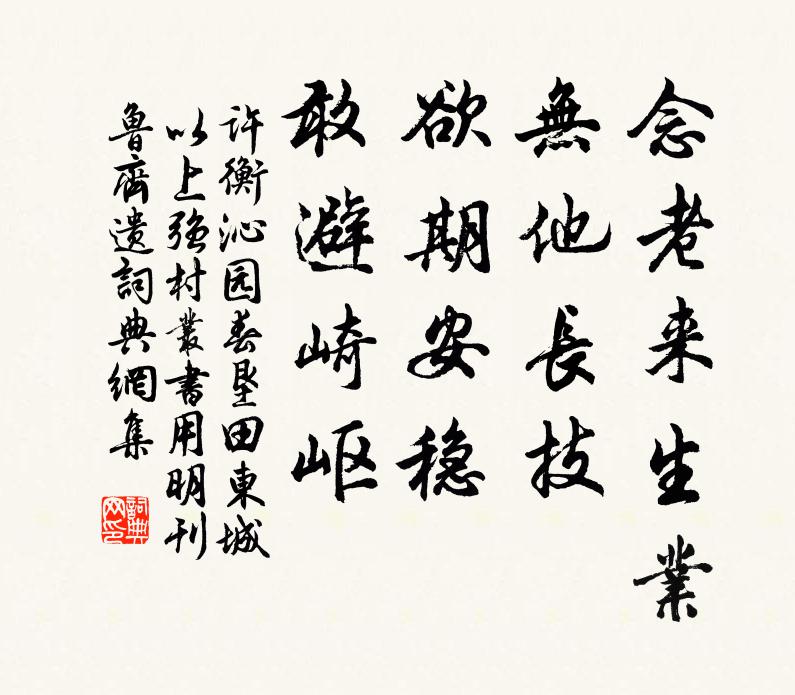 念老来生業
無他長技
欲期安穏
敢避崎岖
许衡沁园春垦田東城
以上强村叢書用明刊
魯齊遗詞典網集
詞典
网印